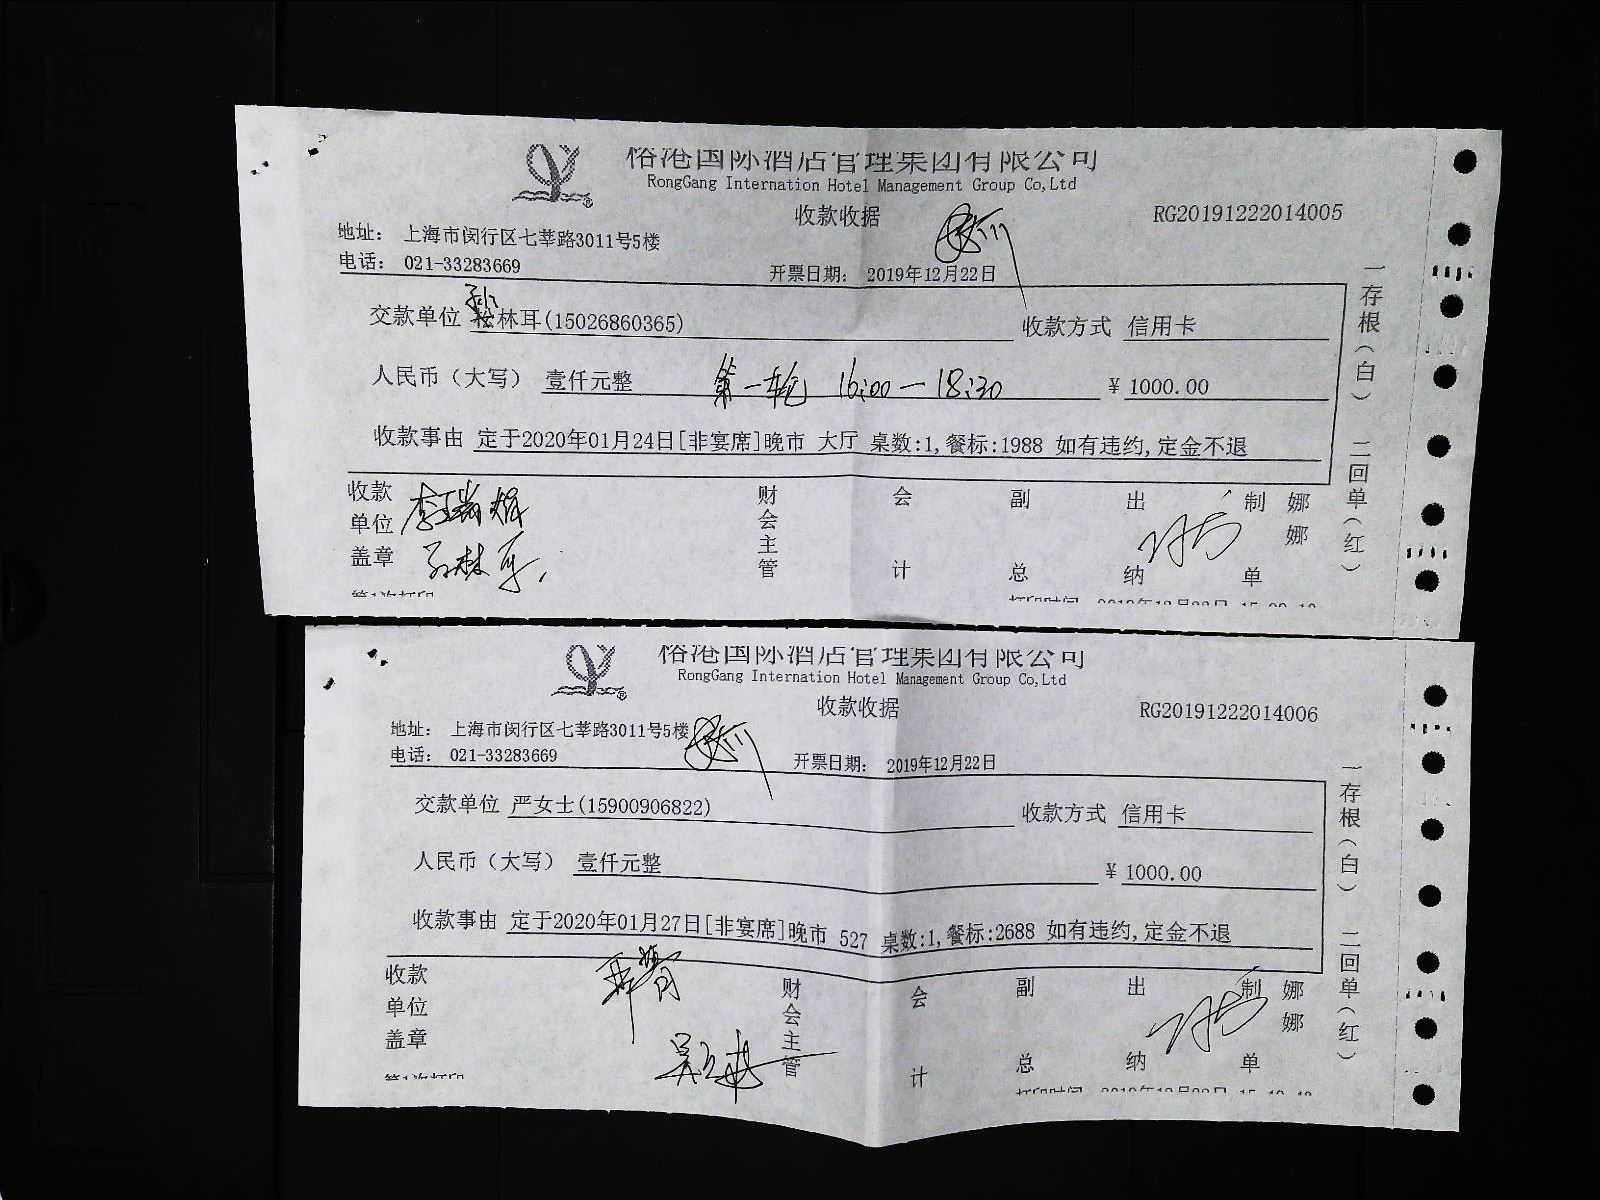 裕港国际酒店管理集团有限公司
RongGang Internation Hotel Management Group Co,Ltd
收款收据
RG20191222014005
地址： 上海市闵行区七莘路3011号5楼
电话： 021-33283669
开票日期： 2019年12月22日
交款单位 孙林耳(15026860365) 收款方式 信用卡
人民币（大写） 壹仟元整 第一轮 16:00—18:30 ￥1000.00
收款事由 定于2020年01月24日[非宴席]晚市 大厅 桌数:1,餐标:1988 如有违约,定金不退
收款单位盖章 财会主管 会计 副总 出纳 制单 娜娜
孙林耳
第1次打印
一存根（白） 二回单（红）
裕港国际酒店管理集团有限公司
RongGang Internation Hotel Management Group Co,Ltd
收款收据
RG20191222014006
地址： 上海市闵行区七莘路3011号5楼
电话： 021-33283669
开票日期： 2019年12月22日
交款单位 严女士(15900906822) 收款方式 信用卡
人民币（大写） 壹仟元整 ￥1000.00
收款事由 定于2020年01月27日[非宴席]晚市 527 桌数:1,餐标:2688 如有违约,定金不退
收款单位盖章 财会主管 会计 副总 出纳 制单 娜娜
第1次打印
一存根（白） 二回单（红）